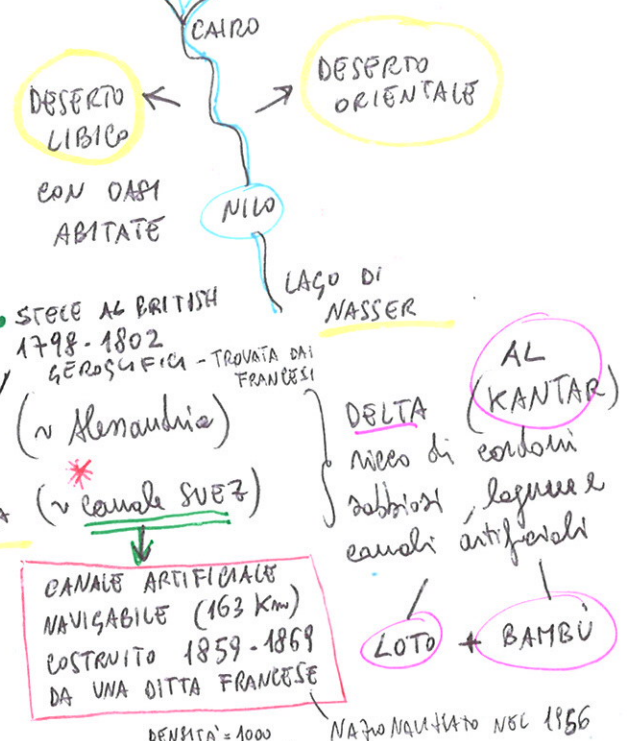 CAIRO
DESERTO
LIBICO
DESERTO
ORIENTALE
CON OASI
ABITATE
NILO
LAGO DI
NASSER
STELE AL BRITISH
1798-1802
GEROGLIFICI - TROVATA DAI
FRANCESI
(v Alessandria)
* (v canale SUEZ)
DELTA
ricco di cordoni
sabbiosi, lagune e
canali artificiali
AL
(KANTAR)
LOTO + BAMBÙ
CANALE ARTIFICIALE
NAVIGABILE (163 Km)
COSTRUITO 1859-1869
DA UNA DITTA FRANCESE
DENSITA' = 1000
NAZIONALIZZATO NEL 1956